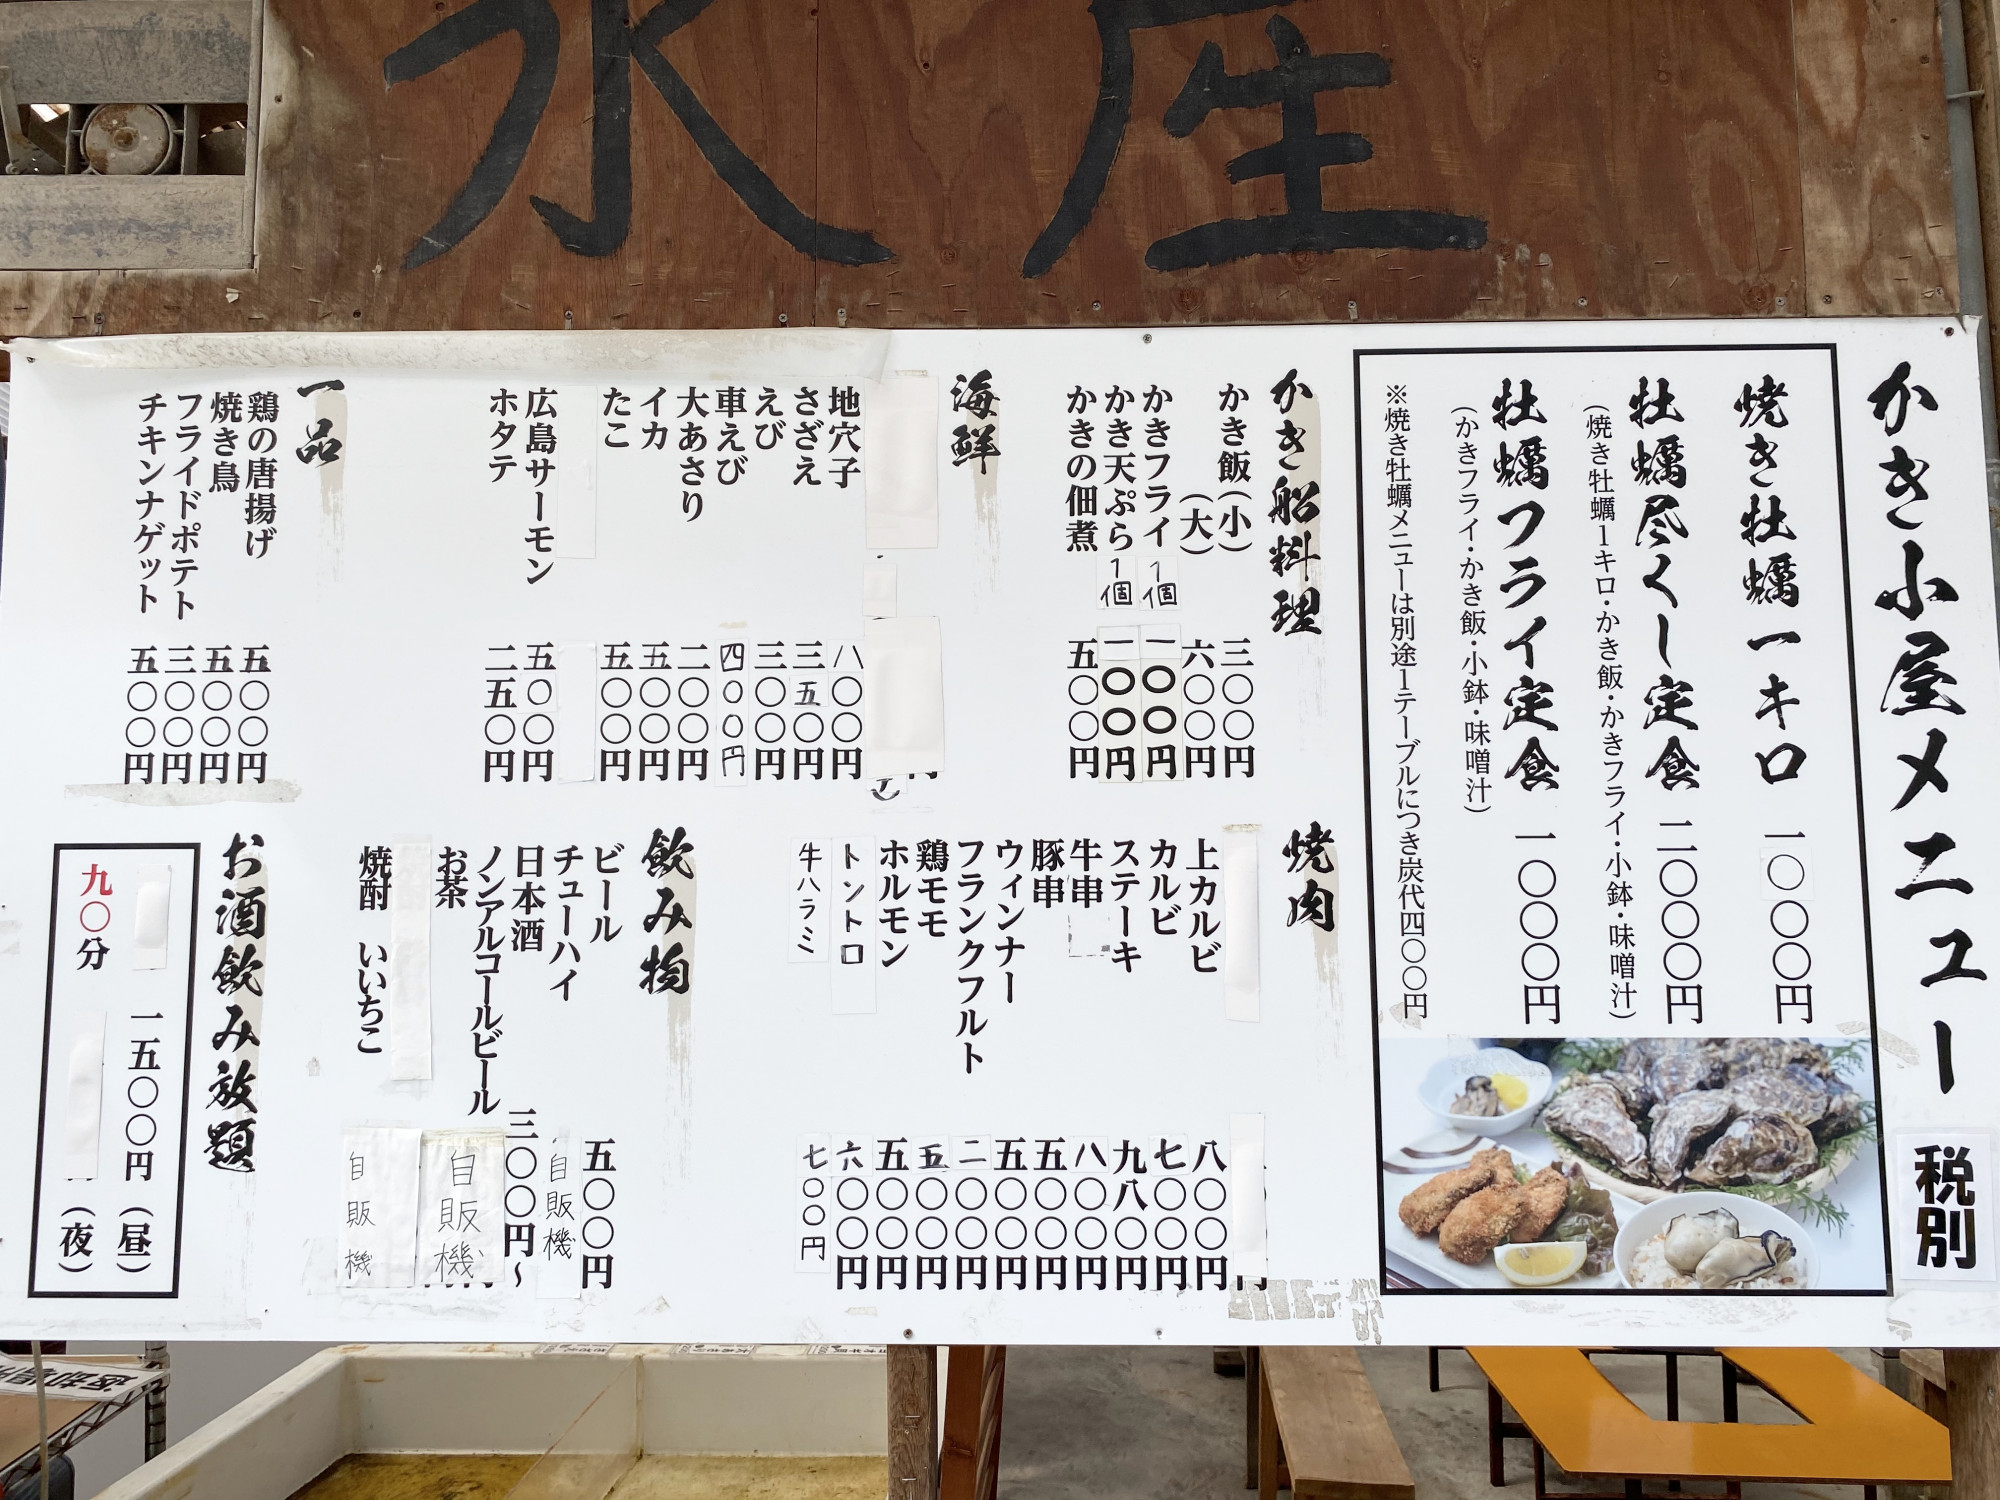 水産
かき小屋メニュー
税別
焼き牡蠣一キロ 一〇〇〇円
牡蠣尽くし定食 二〇〇〇円
（焼き牡蠣1キロ・かき飯・かきフライ・小鉢・味噌汁）
牡蠣フライ定食 一〇〇〇円
（かきフライ・かき飯・小鉢・味噌汁）
※焼き牡蠣メニューは別途1テーブルにつき炭代四〇〇円
かき船料理
かき飯（小） 三〇〇円
（大） 六〇〇円
かきフライ 1個 一〇〇円
かき天ぷら 1個 一〇〇円
かきの佃煮 五〇〇円
海鮮
地穴子 八〇〇円
さざえ 三五〇円
えび 三〇〇円
車えび 四〇〇円
大あさり 二〇〇円
イカ 五〇〇円
たこ 五〇〇円
広島サーモン 五〇〇円
ホタテ 二五〇円
一品
鶏の唐揚げ 五〇〇円
焼き鳥 五〇〇円
フライドポテト 三〇〇円
チキンナゲット 五〇〇円
焼肉
上カルビ 八〇〇円
カルビ 七〇〇円
ステーキ 九八〇円
牛串 八〇〇円
豚串 五〇〇円
ウィンナー 五〇〇円
フランクフルト 二〇〇円
鶏モモ 五〇〇円
ホルモン 五〇〇円
トントロ 六〇〇円
牛ハラミ 七〇〇円
飲み物
ビール 五〇〇円
チューハイ 自販機
日本酒 三〇〇円〜
ノンアルコールビール
お茶 自販機
焼酎 いいちこ 自販機
お酒飲み放題
一五〇〇円（昼）
九〇分 （夜）